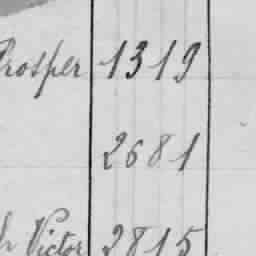 Prosper 1319
2681
Victor 2815